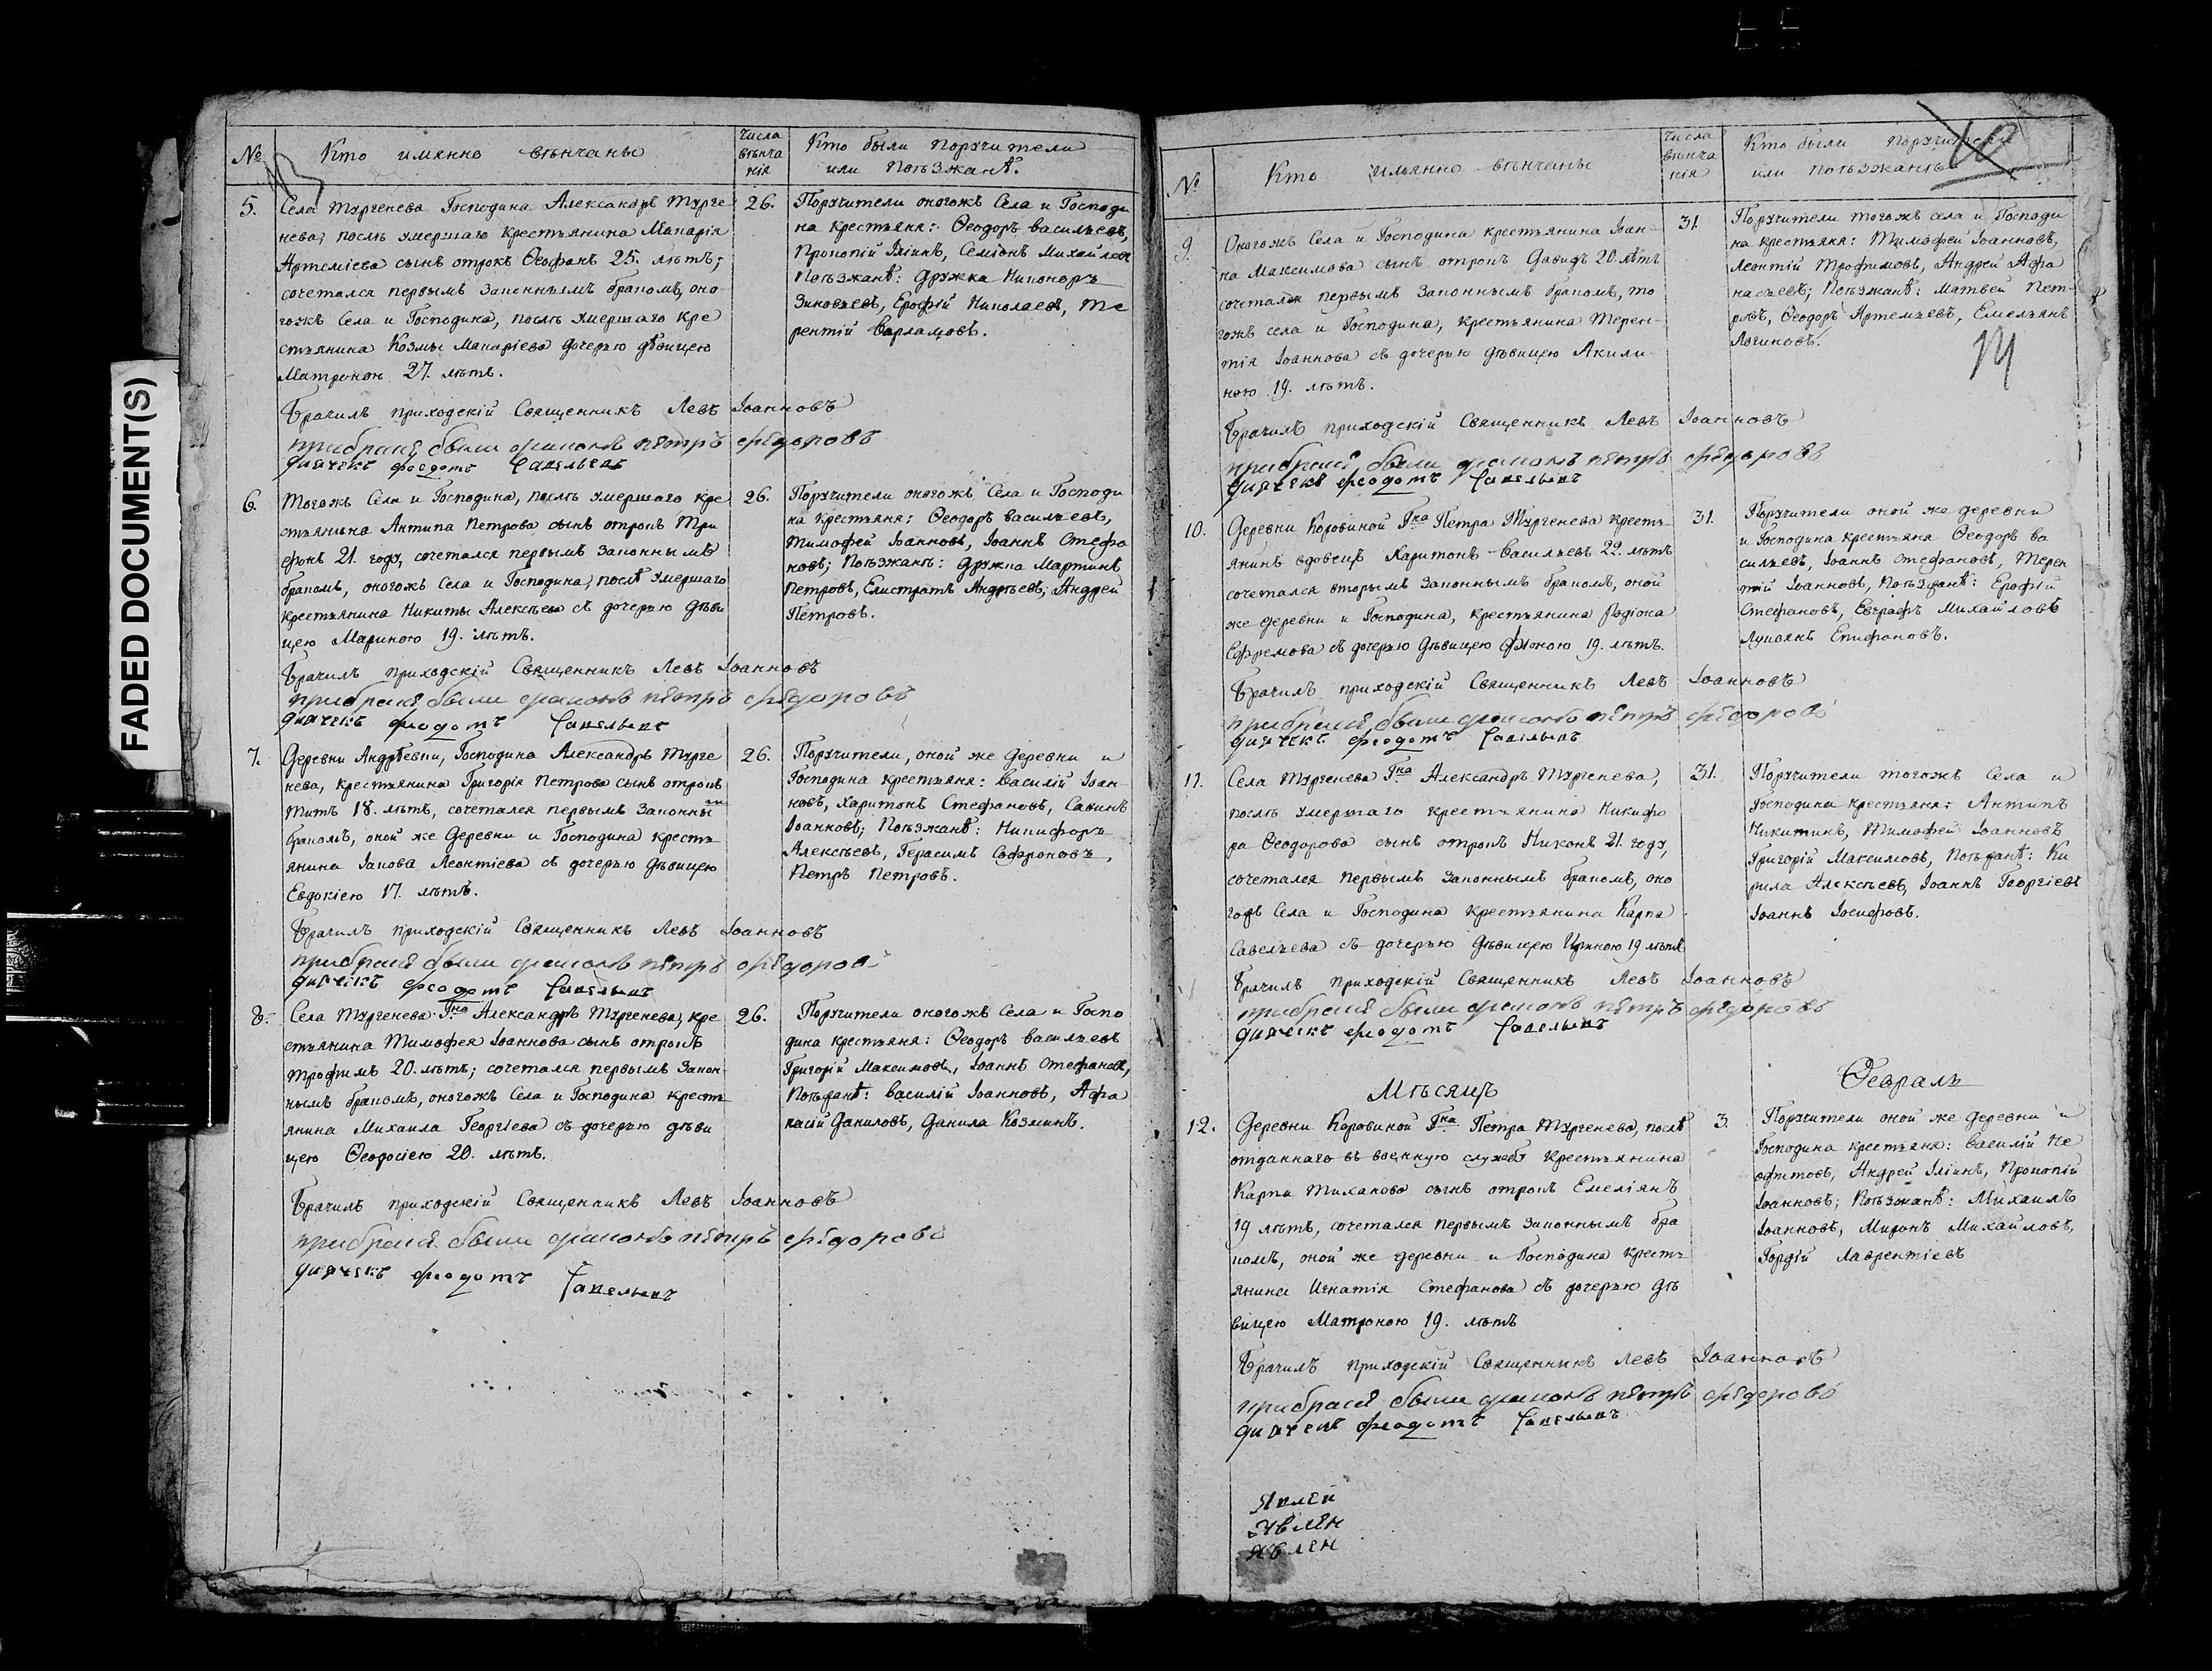 FADED DOCUMENT(S)
№
Кто имянно вѣнчаны
числа вѣнчанія
Кто были поручители
или поѣзжанѣ.
13
5.
Села Тургенева Господина Александръ Турге
нева, послѣ умершаго крестьянина Макарія
Артеміева сынъ отрокъ Ѳеофанъ 25. лѣтъ;
сочетался первымъ законнымъ бракомъ, оно
гожъ Села и Господина, послѣ умершаго кре
стьянина Козмы Макаріева дочерью дѣвицею
Матроною 27. лѣтъ.
26.
Поручители оногожъ Села и Господи
на крестьяня: Ѳеодоръ васильевъ,
Прокопій Іліинъ, Семіонъ Михайловъ
Поѣзжанѣ: дружка Никоноръ
Зиновьевъ, Ерофій Николаевъ, Те
рентій Варламовъ.
Брачилъ приходскій Священникъ Левъ Іоанновъ
прибраке были диаконъ петръ федоровъ
дьячекъ феодотъ Савельевъ
6.
Тогожъ Села и Господина, послѣ умершаго кре
стьянина Антипа Петрова сынъ отрокъ Три
фонъ 21. году, сочетался первымъ законнымъ
бракомъ, оногожъ Села и Господина, послѣ умершаго
крестьянина Никиты Алексѣева съ дочерью дѣви
цею Мариною 19. лѣтъ.
26.
Поручители оногожъ Села и Господи
на крестьяня: Ѳеодоръ васильевъ,
Тимофей Іоанновъ, Іоаннъ Стефа
новъ; Поѣзжанѣ: дружка Мартинъ
Петровъ, Елистратъ Андрѣевъ, Андрей
Петровъ.
Брачилъ приходскій Священникъ Левъ Іоанновъ
прибраке были диаконъ петръ федоровъ
дьячекъ феодотъ Савельевъ
7.
Деревни Андрѣевки, Господина Александръ Турге
нева, крестьянина Григорія Петрова сынъ отрокъ
Титъ 18. лѣтъ, сочетался первымъ законны
мъ
бракомъ, оной же деревни и Господина кресть
янина Іакова Леонтіева съ дочерью дѣвицею
Евдокіею 17. лѣтъ.
26.
Поручители, оной же деревни и
Господина крестьяня: василій Іоан-
новъ, харитонъ Стефановъ, Савинъ
Іоанновъ; Поѣзжанѣ: Никифоръ
Алексѣевъ, Герасимъ Софроновъ,
Петръ Петровъ.
Брачилъ приходскій Священникъ Левъ Іоанновъ
прибраке были диаконъ петръ федоровъ
дьячекъ феодотъ Савельевъ
8.
Села Тургенева Гна Александръ Тургенева, кре
стьянина Тимофея Іоаннова сынъ отрокъ
Трофимъ 20. лѣтъ; сочетался первымъ закон-
нымъ бракомъ, оногожъ Села и Господина кресть
янина Михаила Георгіева съ дочерью дѣви
цею Ѳеодосіею 20. лѣтъ.
26.
Поручители оногожъ Села и Госпо
дина крестьяня: Ѳеодоръ васильевъ
Григорій Максимовъ, Іоаннъ Стефановъ,
Поѣзжанѣ: василій Іоанновъ, Афа
насій Даниловъ, Данила Козминъ.
Брачилъ приходскій Священникъ Левъ Іоанновъ
прибраке были диаконъ петръ федоровъ
дьячекъ феодотъ Савельевъ
№
Кто имянно вѣнчаны
числа вѣнчанія
Кто были поручители
или поѣзжанѣ
14
9.
Оногожъ Села и Господина крестьянина Іоан-
на Максимова сынъ отрокъ Давидъ 20. лѣтъ
сочетался первымъ законнымъ бракомъ, то
гожъ села и Господина, крестьянина Терен-
тія Іоаннова съ дочерью дѣвицею Акили-
ною 19. лѣтъ.
31.
Поручители тогожъ села и Господи
на крестьяня: Тимофей Іоанновъ,
Леонтій Трофимовъ, Андрей Афа
насьевъ; Поѣзжанѣ: Матвей Пет-
ровъ, Ѳеодоръ Артемьевъ, Емельянъ
Логиновъ.
Брачилъ приходскій Священникъ Левъ Іоанновъ
прибраке были диаконъ петръ федоровъ
дьячекъ феодотъ Савельевъ
10.
Деревни Коровиной Гна Петра Тургенева кресть-
янинъ вдовецъ Харитонъ васильевъ 22. лѣтъ
сочетался вторымъ законнымъ бракомъ, оной
же деревни и Господина, крестьянина Родіона
Ефремова съ дочерью дѣвицею 19. лѣтъ.
31.
Поручители оной же деревни
и Господина крестьяня Ѳеодоръ ва
сильевъ, Іоаннъ Стефановъ, Терен
тій Іоанновъ, Поѣзжанѣ: Ерофій
Стефановъ, Евграфъ Михайловъ
Лукіянъ Епифановъ.
Брачилъ приходскій Священникъ Левъ Іоанновъ
прибраке были диаконъ петръ федоровъ
дьячекъ феодотъ Савельевъ
11.
Села Тургенева Гна Александръ Тургенева,
послѣ умершаго крестьянина Никифо
ра Ѳеодорова сынъ отрокъ Никонъ 21. году,
сочетался первымъ законнымъ бракомъ, оно
гожъ Села и Господина крестьянина Карпа
Савельева съ дочерью дѣвицею Ириною 19 лѣтъ
31.
Поручители тогожъ Села и
Господина крестьяня: Антипъ
Никитинъ, Тимофей Іоанновъ
Григорій Максимовъ, Поѣзжанѣ: Ки
рила Алексѣевъ, Іоаннъ Георгіевъ
Іоаннъ Іосифовъ.
Брачилъ приходскій Священникъ Левъ Іоанновъ
прибраке были диаконъ петръ федоровъ
дьячекъ феодотъ Савельевъ
Мѣсяцъ Февраль
12.
Деревни Коровиной Гна Петра Тургенева, послѣ
отданнаго въ военную службу крестьянина
Карпа Тиханова сынъ отрокъ Емеліянъ
19 лѣтъ, сочетался первымъ законнымъ бра
комъ, оной же деревни и Господина кресть
янина Игнатія Стефанова съ дочерью дѣ
вицею Матроною 19. лѣтъ
3.
Поручители оной же деревни и
Господина крестьяня: василій Не
офитовъ, Андрей Іліинъ, Прокопій
Іоанновъ; Поѣзжанѣ: Михаилъ
Іоанновъ, Миронъ Михайловъ,
Гордій Лаврентіевъ
Брачилъ приходскій Священникъ Левъ Іоанновъ
прибраке были диаконъ петръ федоровъ
дьячекъ феодотъ Савельевъ